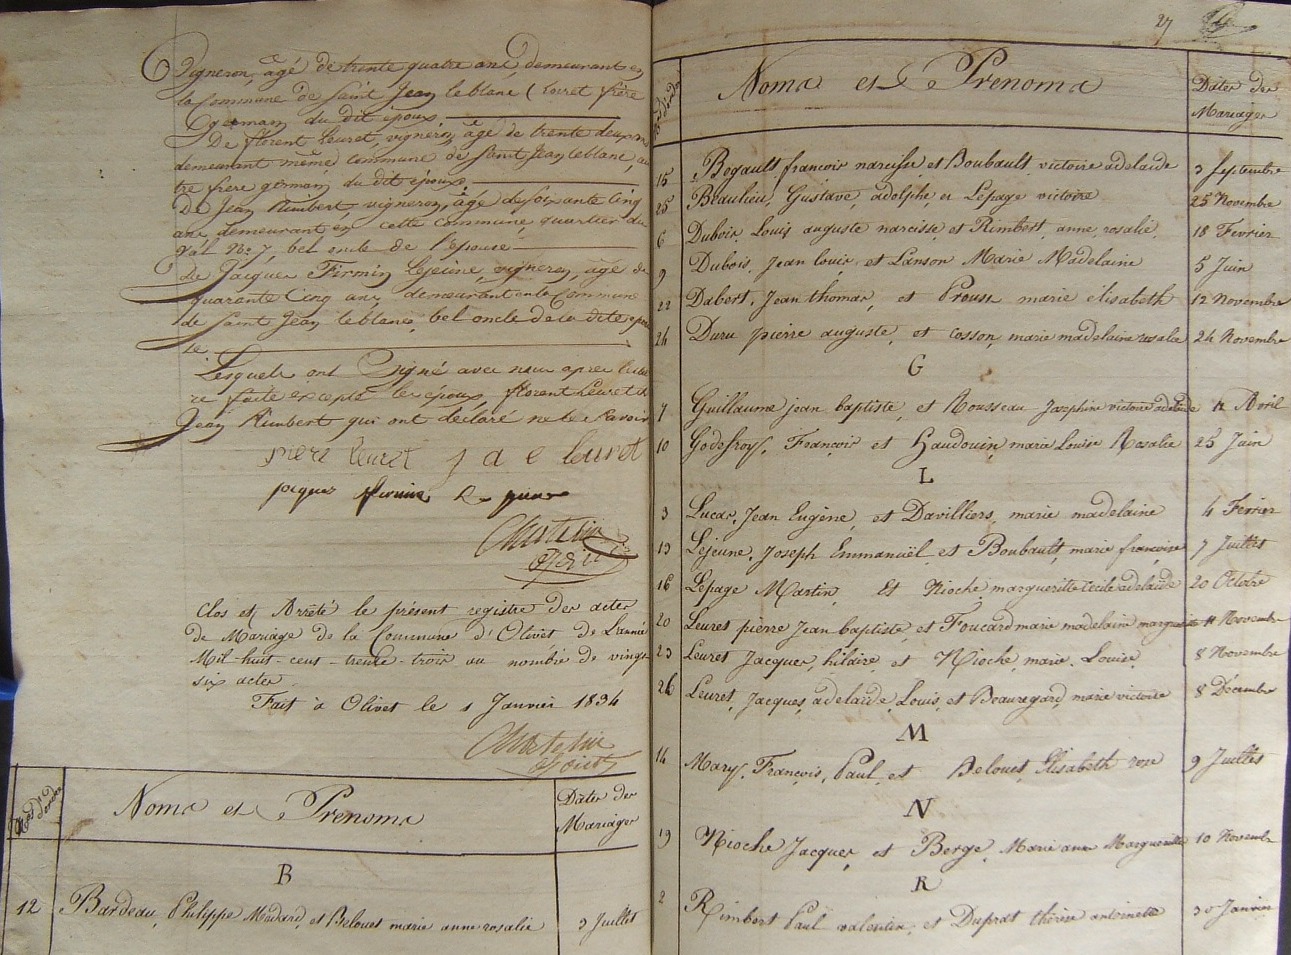 Vigneron, âgé de trente quatre ans, demeurant en
la commune de Saint Jean le blanc (Loiret frère
germain du dit époux.
De florent Leuret, vigneron, âgé de trente deux ans
demeurant même commune de Saint Jean le blanc, au
tre frere germain du dit époux.
De Jean Rimbert, vigneron, âgé de soixante cinq
ans, demeurant en cette commune, quartier du
Val No. 7, bel oncle de l'épouse
De Jacques Firmin Lejeune, vigneron, âgé de
quarante cinq ans, demeurant en la Commune
de Saint Jean le blanc, bel oncle de la dite épou
se.
Lesquels ont Signé avec nous apres lectu
re faite excepté les époux, florent Leuret et
Jean Rimbert qui ont déclaré ne le Savoir
leuret j a l leuret
jacques
Clos et Arrêté le présent registre des actes
de Mariage de la Commune d'Olivet de L'année
Mil-huit-cent-trente-trois au nombre de vingt
six actes.
Fait à Olivet le 1 Janvier 1834
Nos d'ordre
Noms et Prenoms
Dates des
Mariages
B
12 Bardeau, Philippe Médard, et Belouet marie anne rosalie 3 Juillet
27
Noms et Prenoms
Dates des
Mariages
15 Bogault, françois narcisse, et Boubault victoire adelaide 3 Septembre
25 Beaulieu, Gustave, adolphe, et Lepage victoire 25 Novembre
6 Dubois, Louis auguste narcisse, et Rimbert, anne, rosalie. 18 Fevrier
9 Dubois, Jean louis, et Lanson Marie Madelaine 5 Juin
22 Dabert, Jean thomas, et Proust marie élisabeth 12 Novembre
24 Duru pierre auguste, et Cosson, marie madelaine rosalie 24 Novembre
G
7 Guillaume jean baptiste, et Rousseau Josephine victoire adelaide Avril
10 Godefroy, François et Haudouin marie Louise Rosalie 25 Juin
L
3 Lucas, Jean Eugène, et Davilliers, marie madelaine 4 Fevrier
13 Lejeune, Joseph Emmanuël, et Boubault, marie françoise 7 Juillet
16 Lepage Martin, Et Rioche marguerite cecile adelaide 20 Octobre
20 Leuret pierre Jean baptiste, et Foucard marie madelaine 11 Novembre
23 Leuret Jacques, hilaire, et Nioche, marie. Louise. 8 Novembre
26 Leuret, Jacques, adelaide, Louis, et Beauregard, marie victoire 8 Décembre
M
14 Mary, François, Paul, et Belouet Elisabeth rose 9 Juillet
N
19 Nioche Jacques, et Berge, Marie anne Marguerite 10 Novembre
R
2 Rimbert Paul valentin, et Duprat thérèse antoinette 30 Janvier